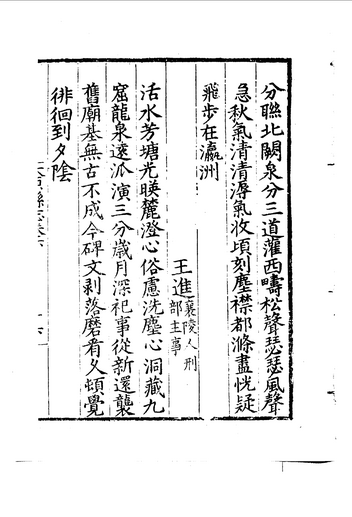 分聯北闕泉分三道灌西疇松聲瑟瑟風聲
急秋氣清清潯氣收頃刻塵襟都滌盡恍疑
飛步在瀛洲
王進襄陵人刑部主事
活水芳塘光暎麓澄心俗慮洗塵心洞藏九
窟龍泉邃派演三分歲月深祀事從新還襲
舊廟基無古不成今碑文剥落磨看久頓覺
徘徊到夕陰